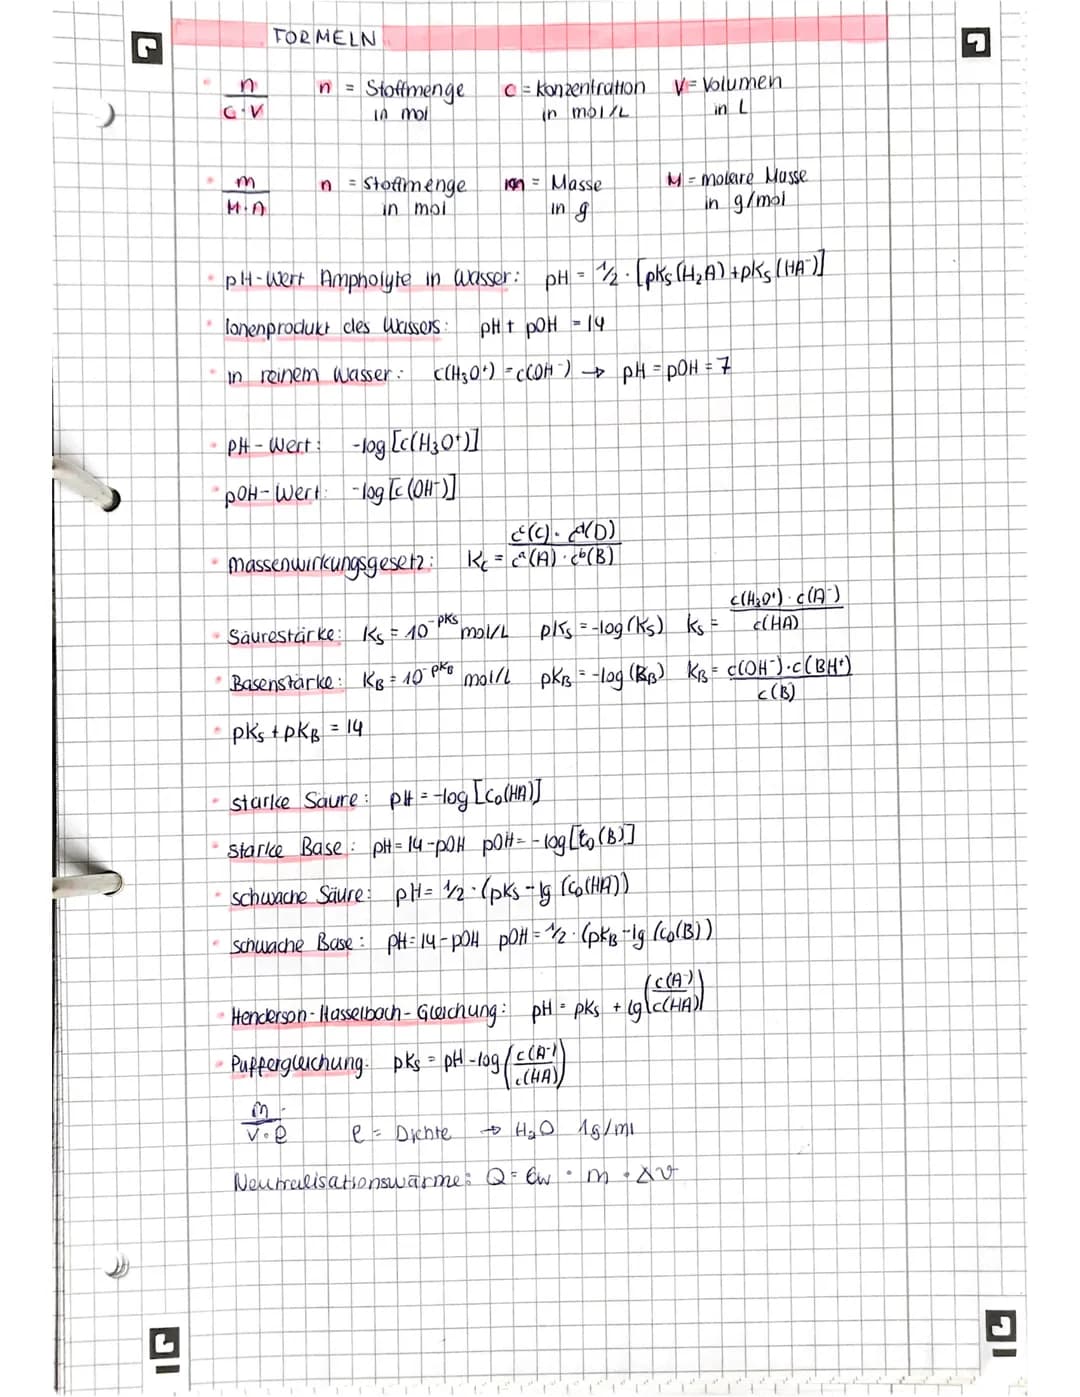 FORMELN
n / c·V   n = Stoffmenge in mol   c = Konzentration in mol/L   V = Volumen in L
m / M·n   n = Stoffmenge in mol   m = Masse in g   M = molare Masse in g/mol
pH-Wert Ampholyte in Wasser: pH = 1/2 · [pKs(H₂A) + pKs(HA⁻)]
Ionenprodukt des Wassers: pH + pOH = 14
in reinem Wasser: c(H₃O⁺) = c(OH⁻) → pH = pOH = 7
pH-Wert: -log[c(H₃O⁺)]
pOH-Wert: -log[c(OH⁻)]
Massenwirkungsgesetz: Kc = cᶜ(C)·cᵈ(D) / cᵃ(A)·cᵇ(B)
Säurestärke: Ks = 10^-pKs mol/L   pKs = -log(Ks)   Ks = c(H₃O⁺)·c(A⁻) / c(HA)
Basenstärke: KB = 10^-pKB mol/L   pKB = -log(KB)   KB = c(OH⁻)·c(BH⁺) / c(B)
pKs + pKB = 14
starke Säure: pH = -log[c₀(HA)]
starke Base: pH = 14-pOH   pOH = -log[c₀(B)]
schwache Säure: pH = 1/2 · (pKs - lg(c₀(HA))
schwache Base: pH = 14-pOH   pOH = 1/2 · (pKB - lg(c₀(B))
Henderson-Hasselbach-Gleichung: pH = pKs + lg(c(A⁻)/c(HA))
Puffergleichung: pKs = pH - log(c(A⁻)/c(HA))
m / V·ρ   ρ = Dichte → H₂O 1g/ml
Neutralisationswärme: Q = Cw · m · Δϑ